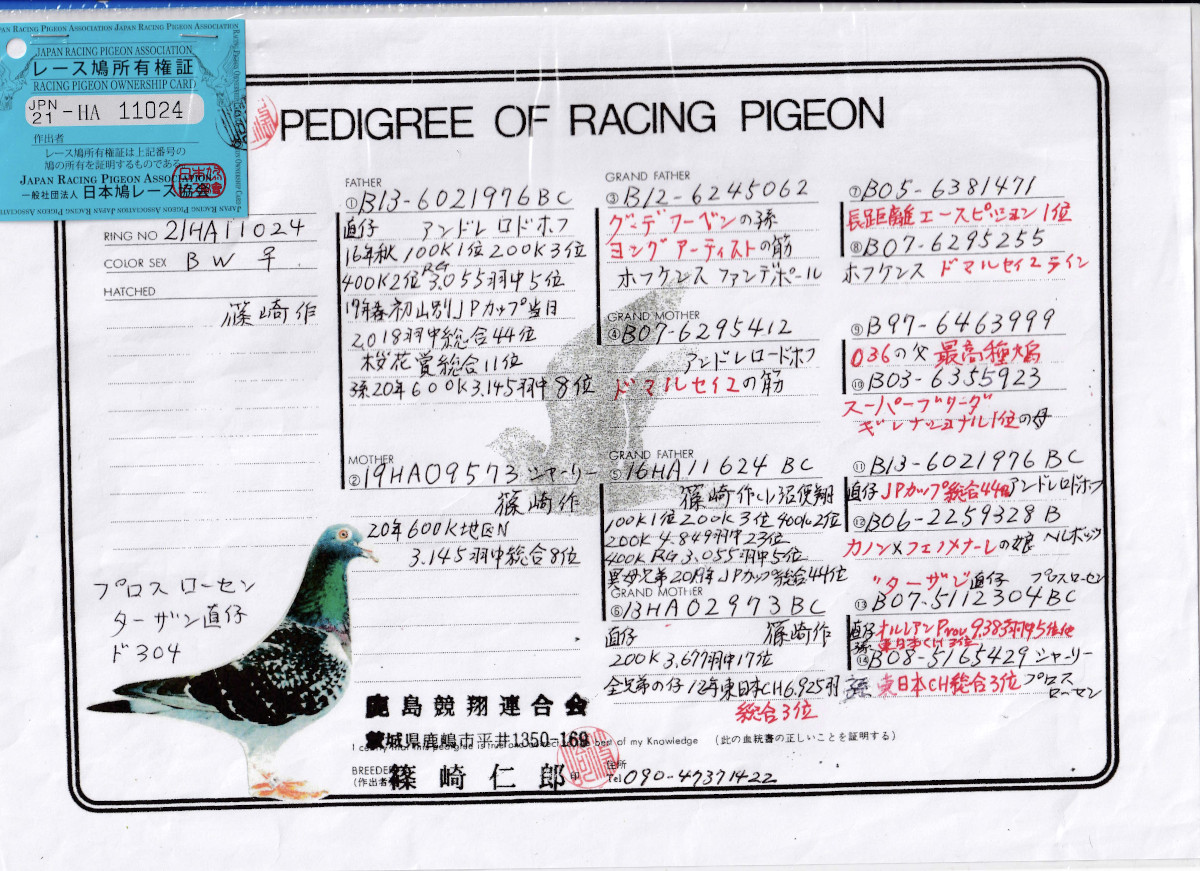 JAPAN RACING PIGEON ASSOCIATION
レース鳩所有権証
RACING PIGEON OWNERSHIP CARD
JPN 21 -HA 11024
作出者
レース鳩所有権証は上記番号の
鳩の所有を証明するものである
JAPAN RACING PIGEON ASSOCIATION
一般社団法人 日本鳩レース協会
PEDIGREE OF RACING PIGEON
RING NO 21HA11024
COLOR SEX B W ♀
HATCHED
篠崎作
プロス ローセン
ターザン直仔
ド304
FATHER
①B13-6021976BC
直仔 アンドレ ロドホフ
16年秋 100K1位 200K3位
400K2位 RG 3.055羽中5位
17年春 初山別JPカップ当日
2,018羽中総合44位
桜花賞総合11位
孫20年600K3.145羽中8位
MOTHER
②19HA09573 シャーリー
篠崎作
20年600K地区N
3.145羽中総合8位
GRAND FATHER
③B12-6245062
グーデフーベンの孫
ヨングアーティストの筋
ホフケンス ファンデポール
GRAND MOTHER
④B07-6295412
アンドレロードホフ
ドマルセイユの筋
GRAND FATHER
⑤16HA11624 BC
篠崎作 小沼使翔
100K1位200K3位400K2位
200K 4.849羽中23位
400K RG 3.055羽中5位
異母兄弟2019年JPカップ総合44位
GRAND MOTHER
⑥13HA02973 BC
直仔 篠崎作
200K 3,677羽中17位
全兄弟の仔12年東日本CH6.925羽
総合3位
⑦B05-6381471
長距離エースピジョン1位
⑧B07-6295255
ホフケンス ドマルセイユライン
⑨B97-6463999
036の父 最高種鳩
⑩B03-6355923
スーパーブリーダ
ギレナショナル1位の母
⑪B13-6021976 BC
直仔JPカップ総合44位アンドレロドホフ
⑫B06-2259328 B
カノン×フェノメナーレの娘
"ターザン"直仔 プロスローセン
⑬B07-5112304BC
直仔オルレアンProv.9.383羽中5位他
⑭B08-5165429 シャーリー
孫 東日本CH総合3位 プロス ローセン
鹿島競翔連合会
茨城県鹿嶋市平井1350-169
I certify that this pedigree is true and correct to the best of my Knowledge (此の血統書の正しいことを証明する)
BREEDER
(作出者) 篠崎仁郎 印
住所
Tel 090-47371422